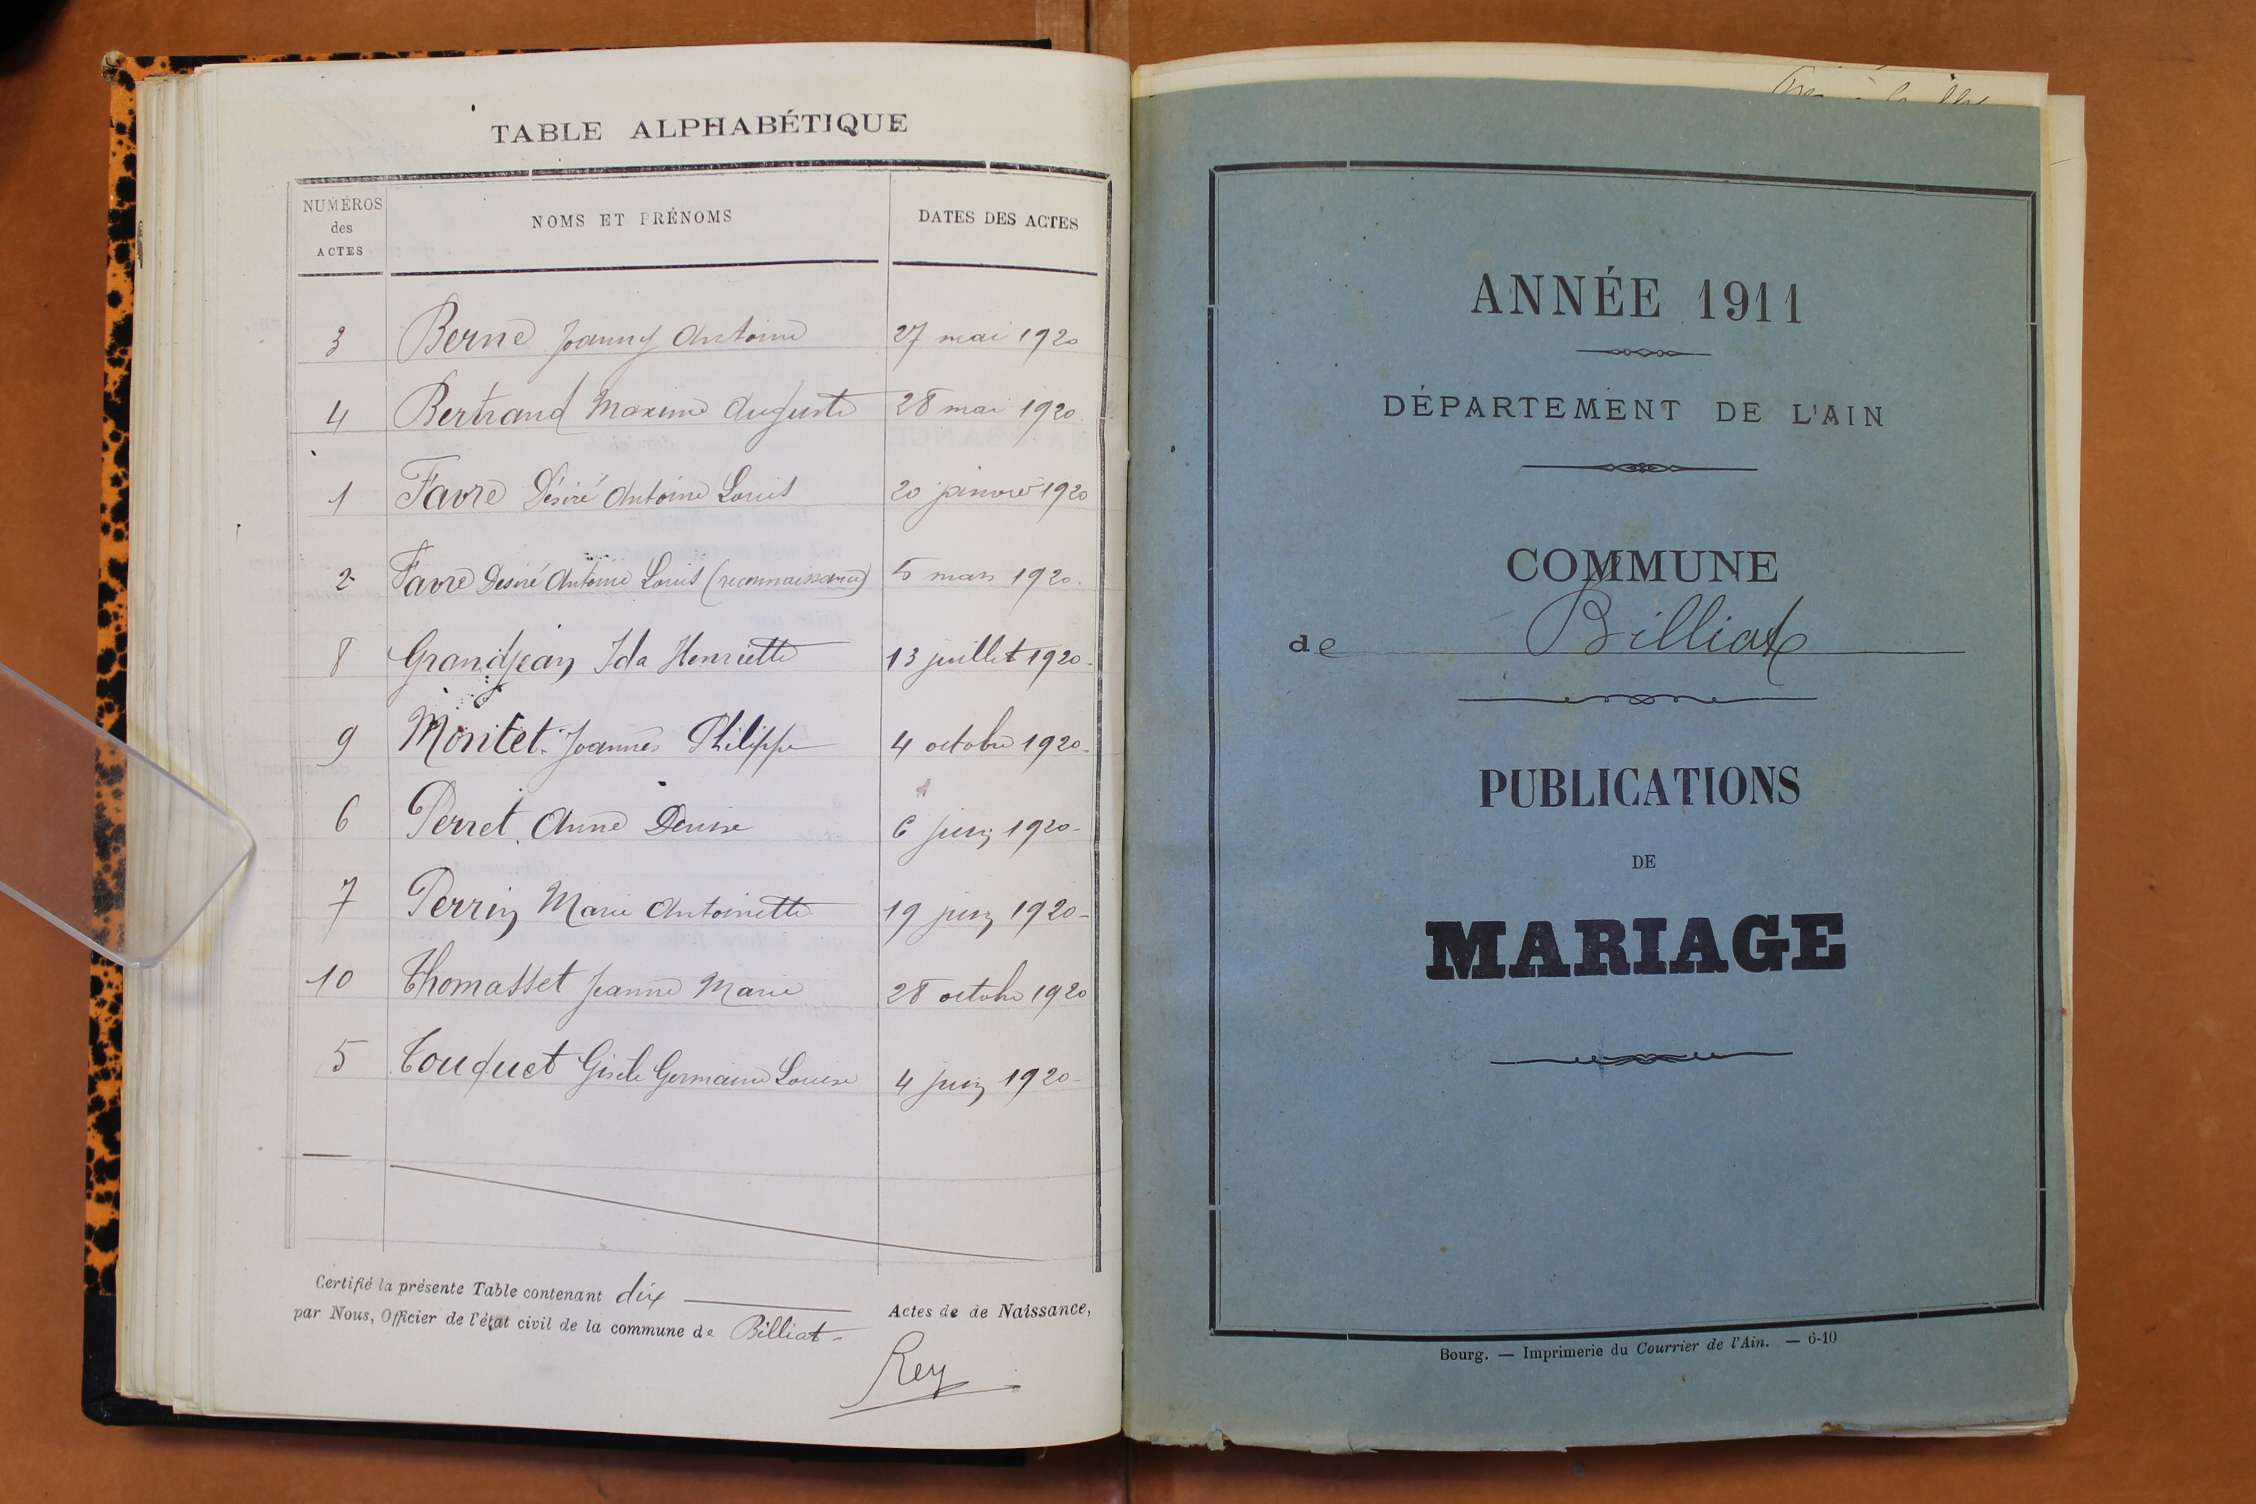 TABLE ALPHABÉTIQUE
NUMÉROS des ACTES NOMS ET PRÉNOMS DATES DES ACTES
3 Berne Joanny Antoine 27 mai 1920
4 Bertrand Maxime Auguste 28 mai 1920
1 Favre Désiré Antoine Louis 20 janvier 1920
2 Favre Desiré Antoine Louis (reconnaissance) 5 mars 1920
8 Grandjean Ida Henriette 13 juillet 1920
9 Montet Joannès Philippe 4 octobre 1920
6 Perret Anne Denise 6 juin 1920
7 Perrin Marie Antoinette 19 juin 1920
10 Thomasset Jeanne Marie 28 octobre 1920
5 Touquet Gisèle Germaine Louise 4 juin 1920
Certifié la présente Table contenant dix Actes de de Naissance,
par Nous, Officier de l'état civil de la commune de Billiat
Rey
ANNÉE 1911
DÉPARTEMENT DE L'AIN
COMMUNE
de Billiat
PUBLICATIONS
DE
MARIAGE
Bourg. — Imprimerie du Courrier de l'Ain. — 6-10